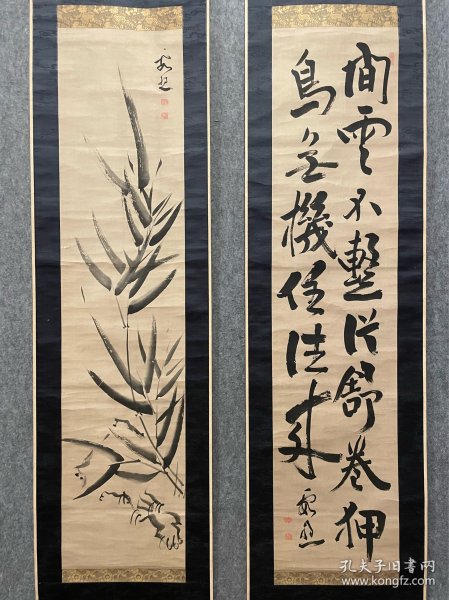 閒雲不繫從舒卷狎
鳥無機任往來
孔夫子旧书网
www.kongfz.com